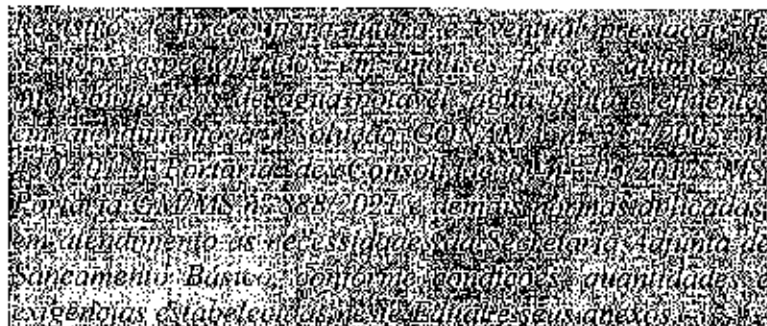 Registro de preço para futura e eventual prestação de
serviços especializados em análises físicos, químicas e
de água potável, água bruta e efluentes
em atendimento a resolução CONAMA nº 357/2005, nº
430/2011, Portaria de Consolidação nº 05/2017 MS,
Portaria GM/MS nº 888/2021 e demais normas aplicadas,
em atendimento as necessidades da Secretaria Adjunta de
Saneamento Básico, conforme condições, quantidades e
exigências estabelecidas neste Edital e seus anexos